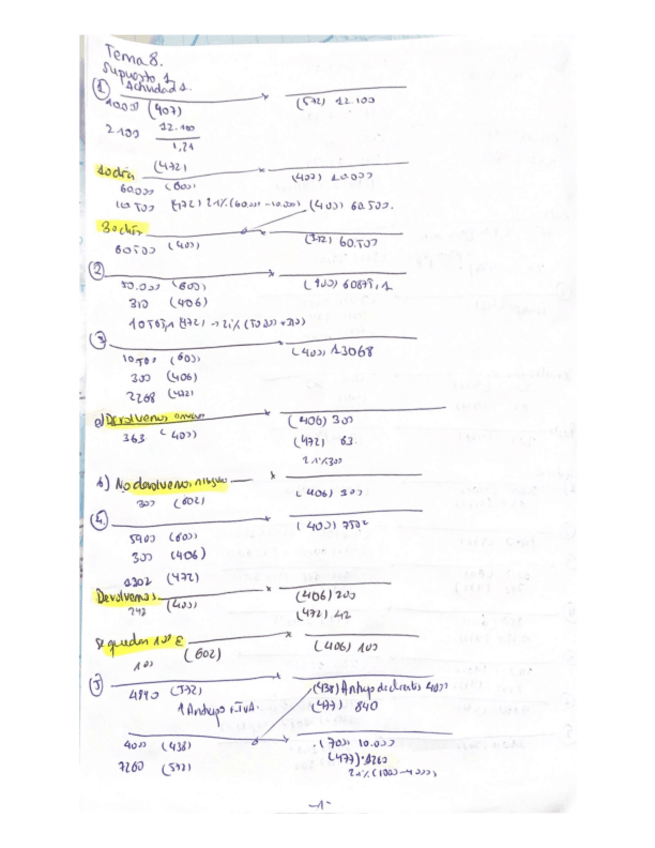 Tema 8.
Supuesto 1
Actividad 1.
① 10000 (407) (572) 12.100
2100 12.100
1,21
(472)
10 días (407) 10.000
60.000 (600)
10 500 (472) 21% (60.000 - 10.000) (400) 60.500.
30 días
60500 (400) (572) 60.500
②
50.000 (600) (400) 60875,1
310 (406)
10565,1 (472) → 21% (50000 + 310)
③ (400) 13068
10500 (600)
300 (406)
2268 (472)
a) Devolvemos envases (406) 300
363 (400) (472) 63.
21% 300
b) No devolvemos ninguno
300 (602) (406) 300
④ (400) 7502
5900 (600)
300 (406)
1302 (472)
Devolvemos (406) 200
242 (400) (472) 42
Se quedan 100 € (406) 100
100 (602)
⑤ 4840 (572) (438) Anticipo de clientes 4000
↑ Anticipo + IVA. (477) 840
4000 (438) (700) 10.000
7260 (572) (477) 1260
21% (10000 - 4000)
-1-